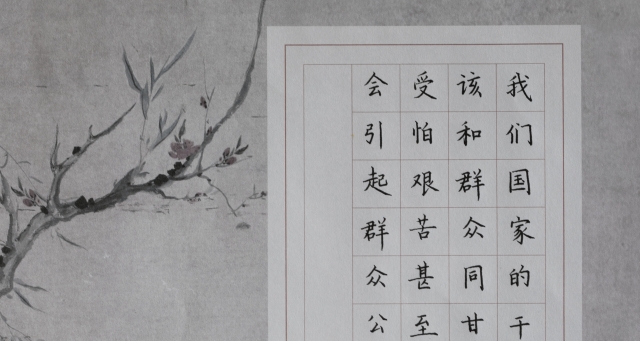 我们国家的干
该和群众同甘
受怕艰苦甚至
会引起群众公